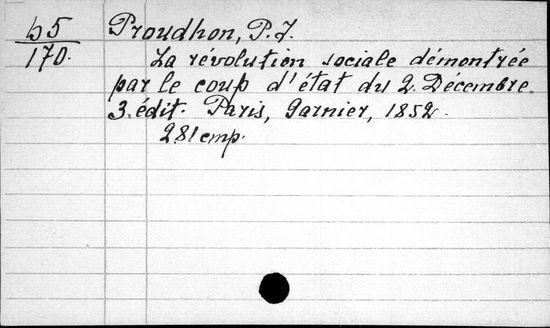 Ъ5 Proudhon, P.J.
170. La révolution sociale démontrée
par le coup d'état du 2. Décembre.
3. édit. Paris, Garnier, 1852.
281 стр.